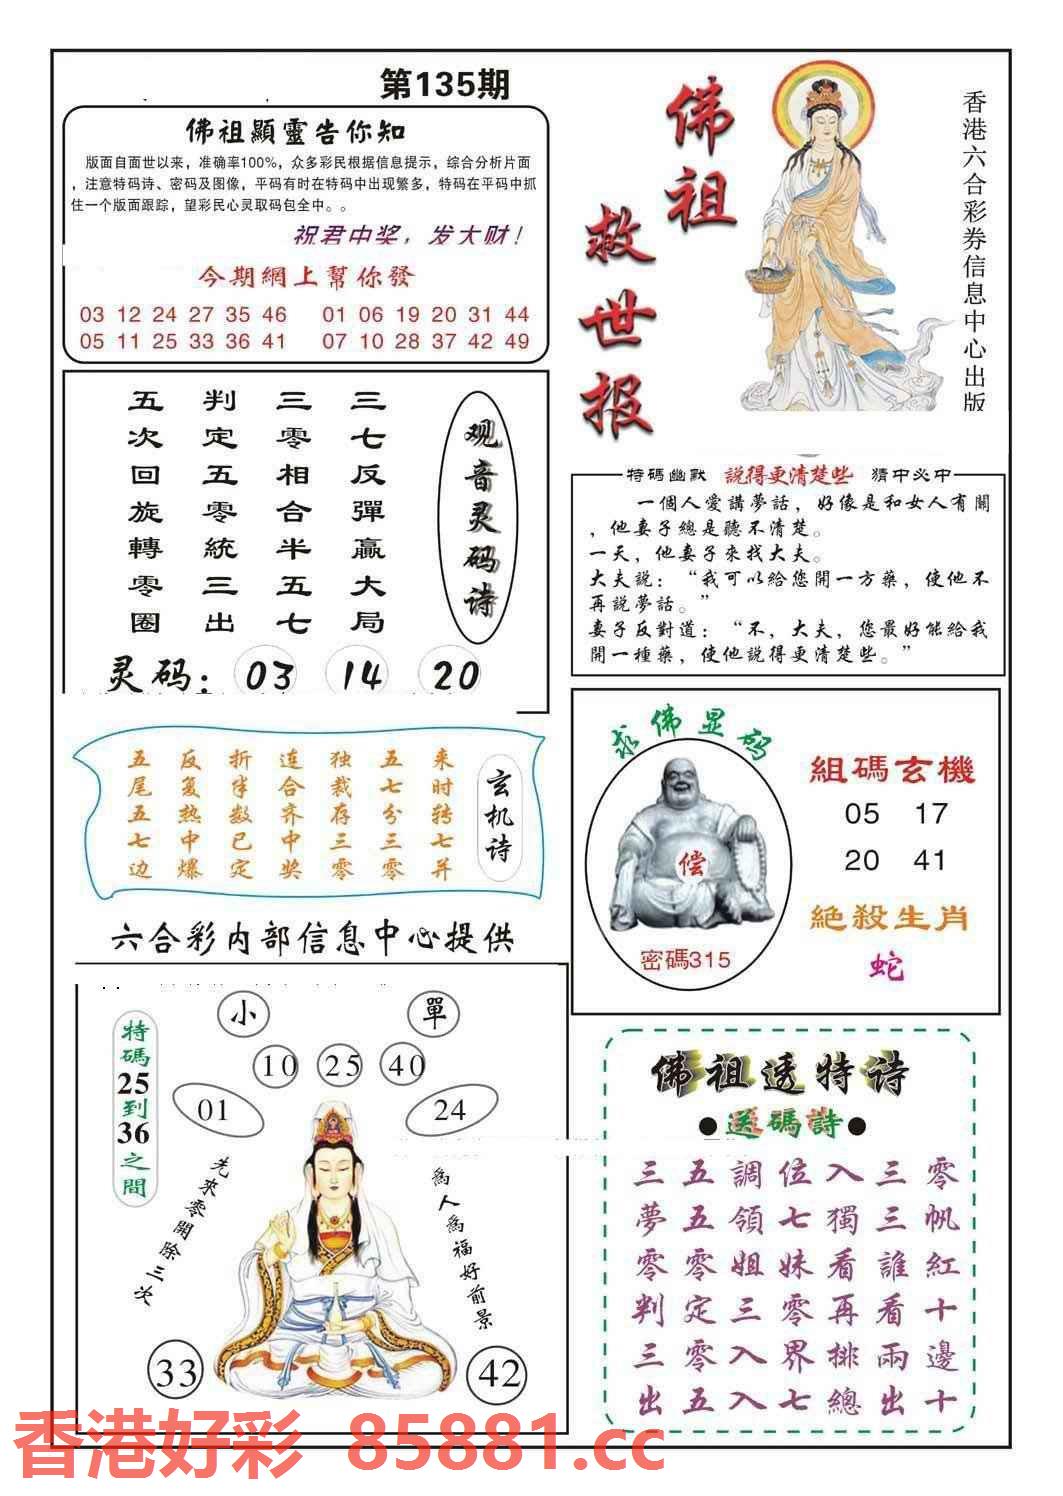 第135期
佛祖顯靈告你知
版面自面世以来，准确率100%，众多彩民根据信息提示，综合分析片面
，注意特码诗、密码及图像，平码有时在特码中出现繁多，特码在平码中抓
住一个版面跟踪，望彩民心灵取码包全中。。
祝君中奖，发大财！
今期網上幫你發
03 12 24 27 35 46 01 06 19 20 31 44
05 11 25 33 36 41 07 10 28 37 42 49
佛祖
救世报
香港六合彩券信息中心出版
观音灵码诗
三七反彈贏大局
三零相合半五七
判定五零統三出
五次回旋轉零圈
灵码：03 14 20
特碼幽默 說得更清楚些 猜中必中
一個人愛講夢話，好像是和女人有關
，他妻子總是聽不清楚。
一天，他妻子來找大夫。
大夫説：“我可以給您開一方藥，使他不
再説夢話。”
妻子反對道：“不，大夫，您最好能給我
開一種藥，使他説得更清楚些。”
玄机诗
来时转七并
五七分三零
独裁存三零
连合齐中奖
折半数已定
反复热中爆
五尾五七边
求佛显码
偿
密碼315
組碼玄機
05 17
20 41
絕殺生肖
蛇
六合彩内部信息中心提供
特碼25到36之間
小 單
10 25 40
01 24
先來零開除三次
為人為福好前景
33 42
佛祖透特诗
●送碼詩●
三五調位入三零
夢五領七獨三帆
零零姐妹看誰紅
判定三零再看十
三零入界排兩邊
出五入七總出十
香港好彩 85881.cc